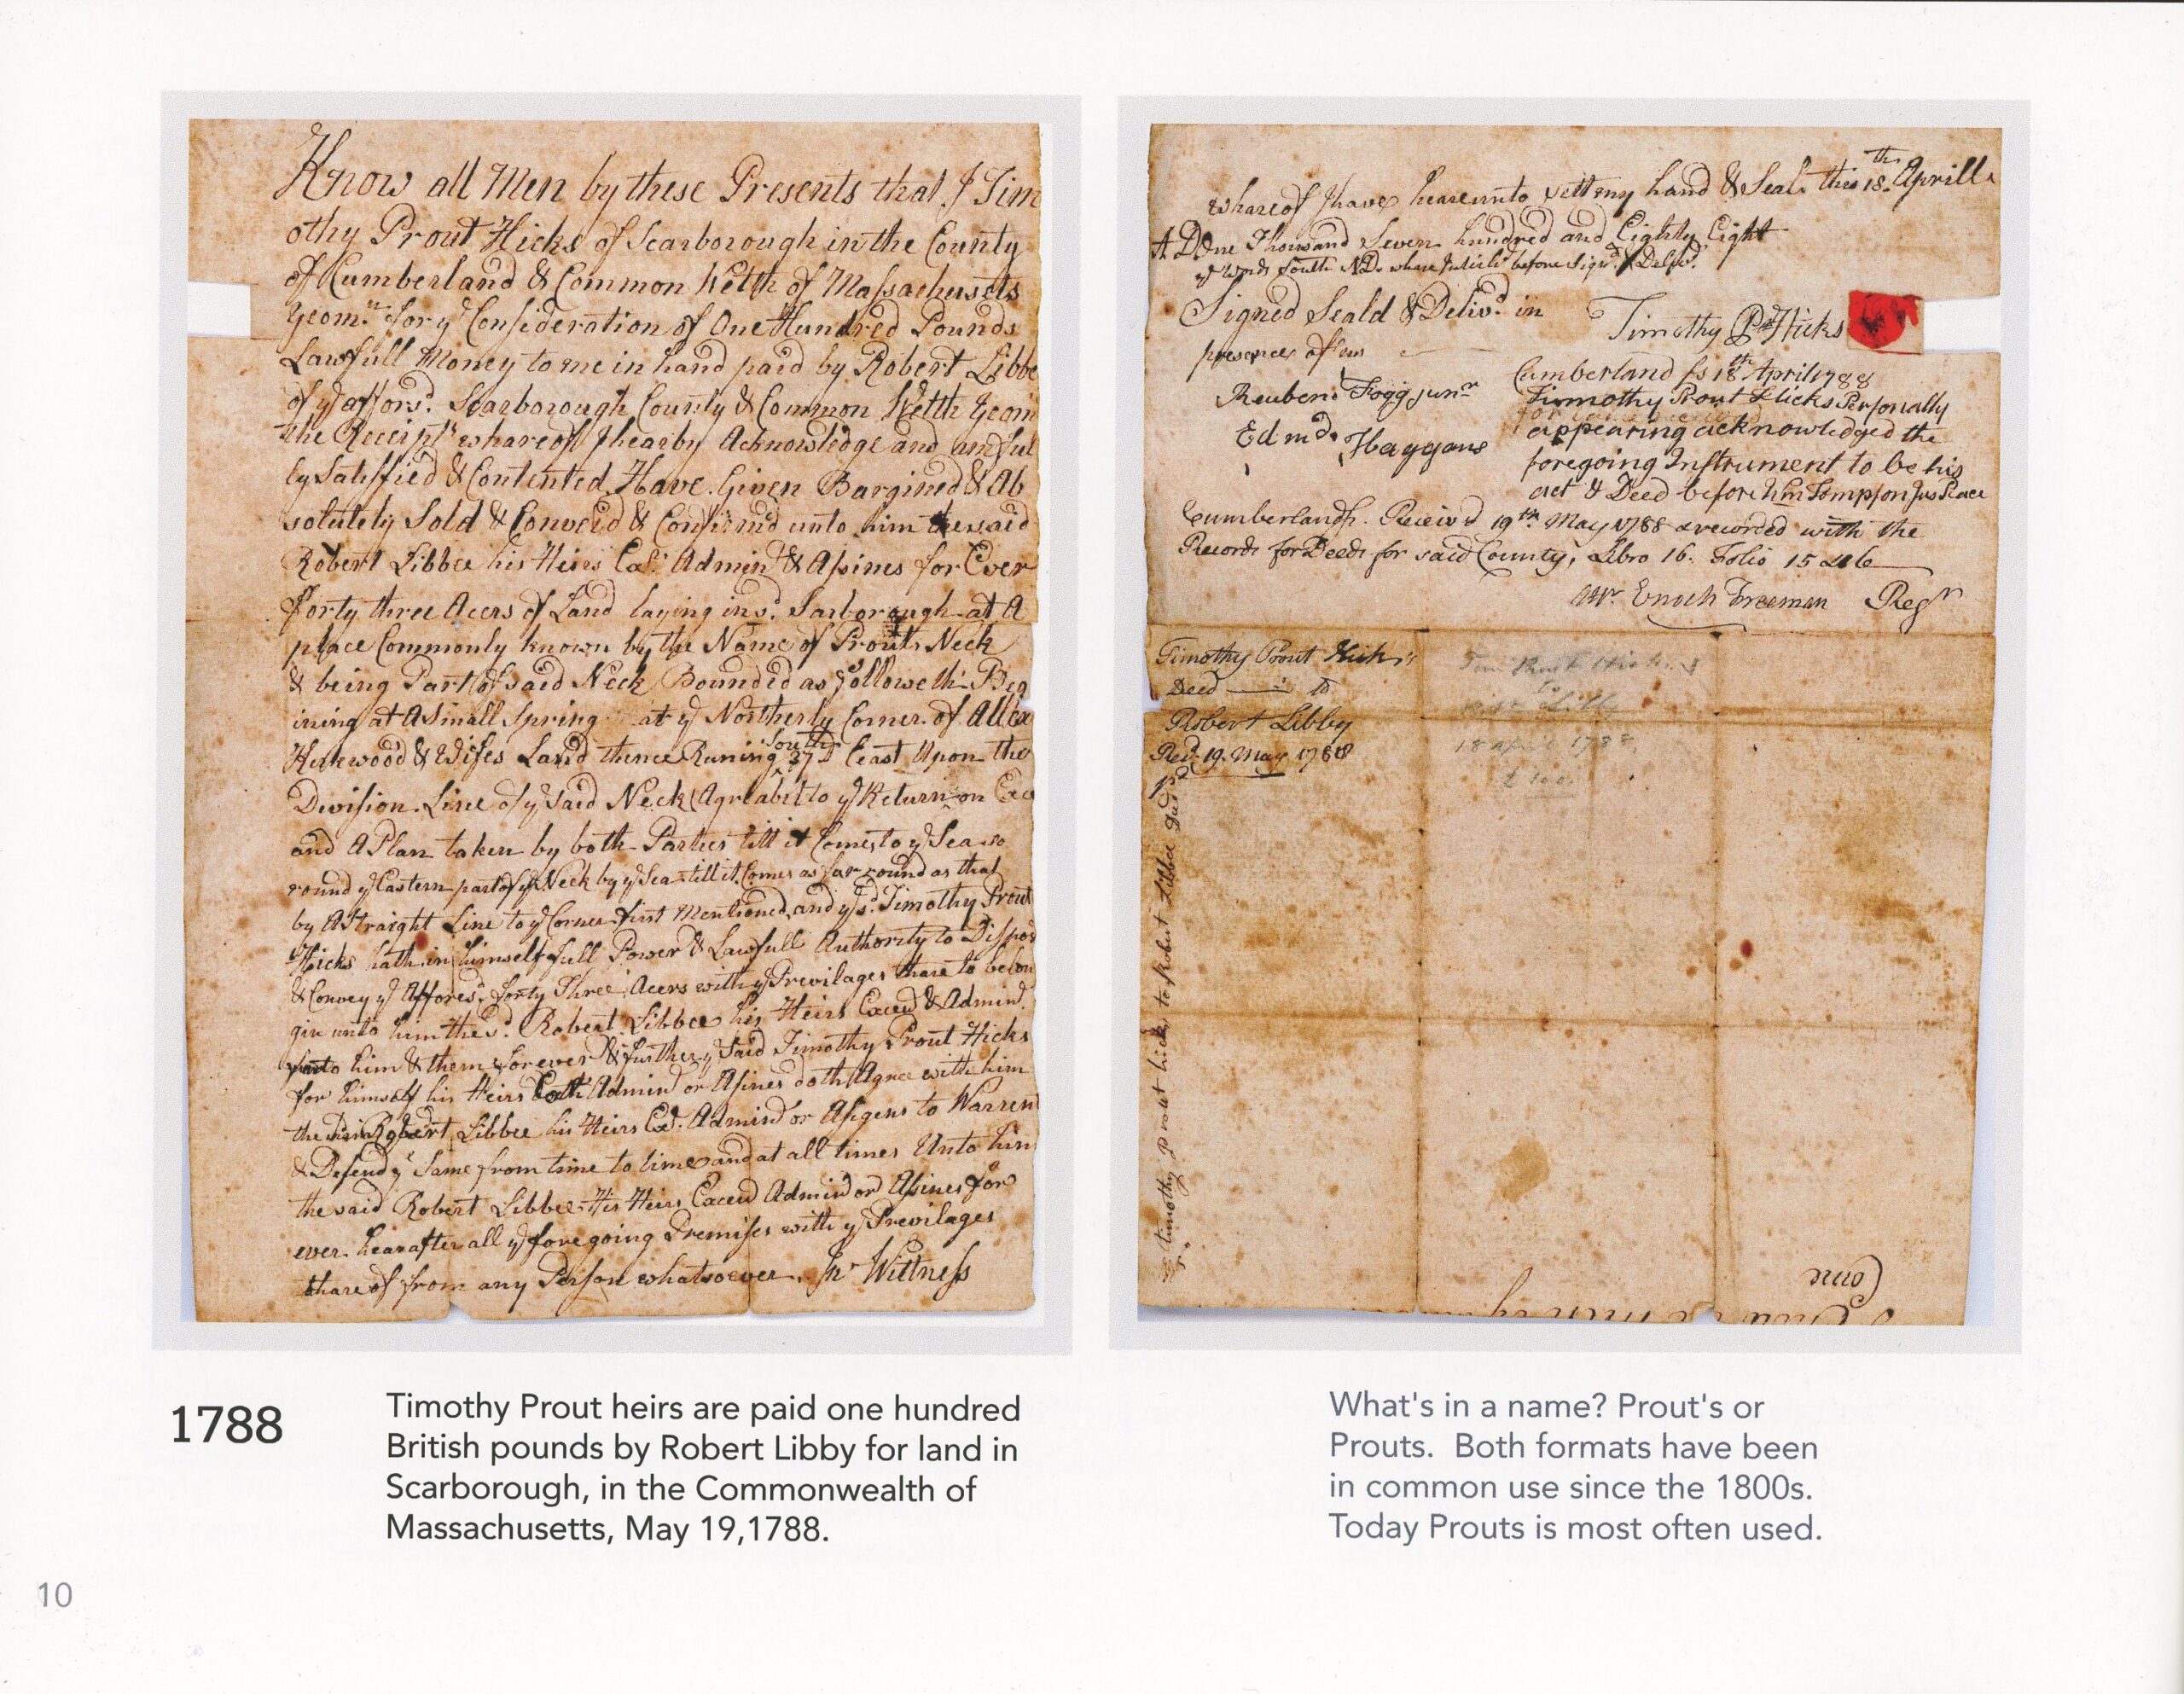 Know all Men by these Presents that I Tim
othy Prout Hicks of Scarborough in the County
of Cumberland & Common Welth of Massachusets
Yeomn. for ye Consideration of One Hundred Pounds
Lawfull Money to me in hand paid by Robert Libbe
of ye afforsd. Scarborough County & Common Welth Yeom
the Receipt whareof I hearby Acknowledge and am ful
ly Satisfied & Contented Have Given Bargined & Ab
solutely Sold & Conveied & Confirmd unto him the said
Robert Libbee his Heirs Admind & Asines for Ever
forty three Acers of Land laying in sd. Sarborough at A
place Commonly known by the Name of Prouts Neck
& being Part of said Neck Bounded as followeth Beg
ining at A Small Spring at ye Northerly Corner of Allex
Kirkwood & Wifes Land thence Runing South 37D East Upon the
Division Line of ye Said Neck (Agreabel to ye Return on Exe
and A Plan taken by both Parties till it Comes to ye Sea so
round ye Eastern part of ye Neck by ye Sea till it Comes as far round as that
by A Straight Line to ye Corner first Mentioned, and ye sd. Timothy Prout
Hicks hath in himself full Power & Lawfull Authority to Dispos
& Convey ye Afforesd. forty Three Acers with ye Previlages thare to belon
gin unto him the sd. Robert Libbee his Heirs Execd & Admind.
unto him & them forever & further ye Said Timothy Prout Hicks
for himself his Heirs Admind or Asines doth Agree with him
the Robert Libbee his Heirs Ed. Admind or Asigens to Warren
& Defend ye Same from time to time and at all times Unto him
the said Robert Libbee His Heirs Execd Admind or Asines for
ever hearafter all ye foregoing Premises with ye Previlages
thareof from any Person whatsoever. In Wittness
whareof I have heareunto sett my hand & Seal this 18th. Aprill
A D One Thousand Seven hundred and Eighty Eight
ye Words South before Signd. & Delivd.
Signed Seald & Delivd. in
presence of us
Timothy Pt Hicks
Reuben Fogg junr
Edmd. Haggens
Cumberland ss 18th April 1788
Timothy Prout Hicks Personally
appearing acknowledged the
foregoing Instrument to be his
act & Deed before Wm Tompson Jus Peace
Cumberland ss. Receivd 19th. May 1788 & recorded with the
Records for Deeds for said County, Libro 16. Folio 15
Attr Enoch Freeman Regr
Timothy Prout Hicks
Deed to
Robert Libby
Recd. 19. May 1788
Tim Prout Hicks
to
Libby
18 april 1788
£ 100
timothy prout hicks to Robert Libbee
Come
1788
Timothy Prout heirs are paid one hundred
British pounds by Robert Libby for land in
Scarborough, in the Commonwealth of
Massachusetts, May 19,1788.
What's in a name? Prout's or
Prouts. Both formats have been
in common use since the 1800s.
Today Prouts is most often used.
10